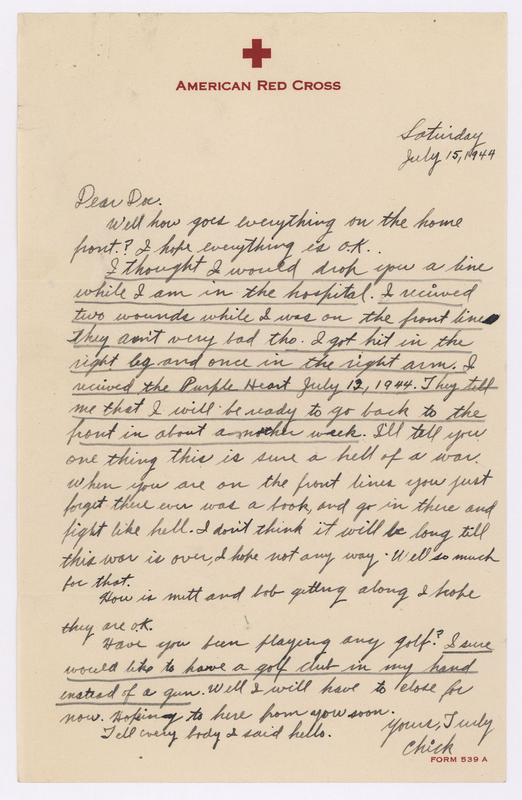 AMERICAN RED CROSS
Saturday
July 15, 1944
Dear Doc.
Well how goes everything on the home
front.? I hope everything is O.K..
I thought I would drop you a line
while I am in the hospital. I recived
two wounds while I was on the front lines
they ain't very bad tho. I got hit in the
right leg and once in the right arm. I
recived the Purple Heart July 12, 1944. They tell
me that I will be ready to go back to the
front in about another week. I'll tell you
one thing this is sure a hell of a war.
When you are on the front lines you just
forget there ever was a book, and go in there and
fight like hell. I don't think it will be long till
this war is over, I hope not any way. Well so much
for that.
How is mutt and bob getting along I hope
they are O.K.
Have you been playing any golf? I sure
would like to have a golf club in my hand
instead of a gun. Well I will have to close for
now. Hoping to here from you soon.
Tell every body I said hello.
Yours, Truly
Chick
FORM 539 A